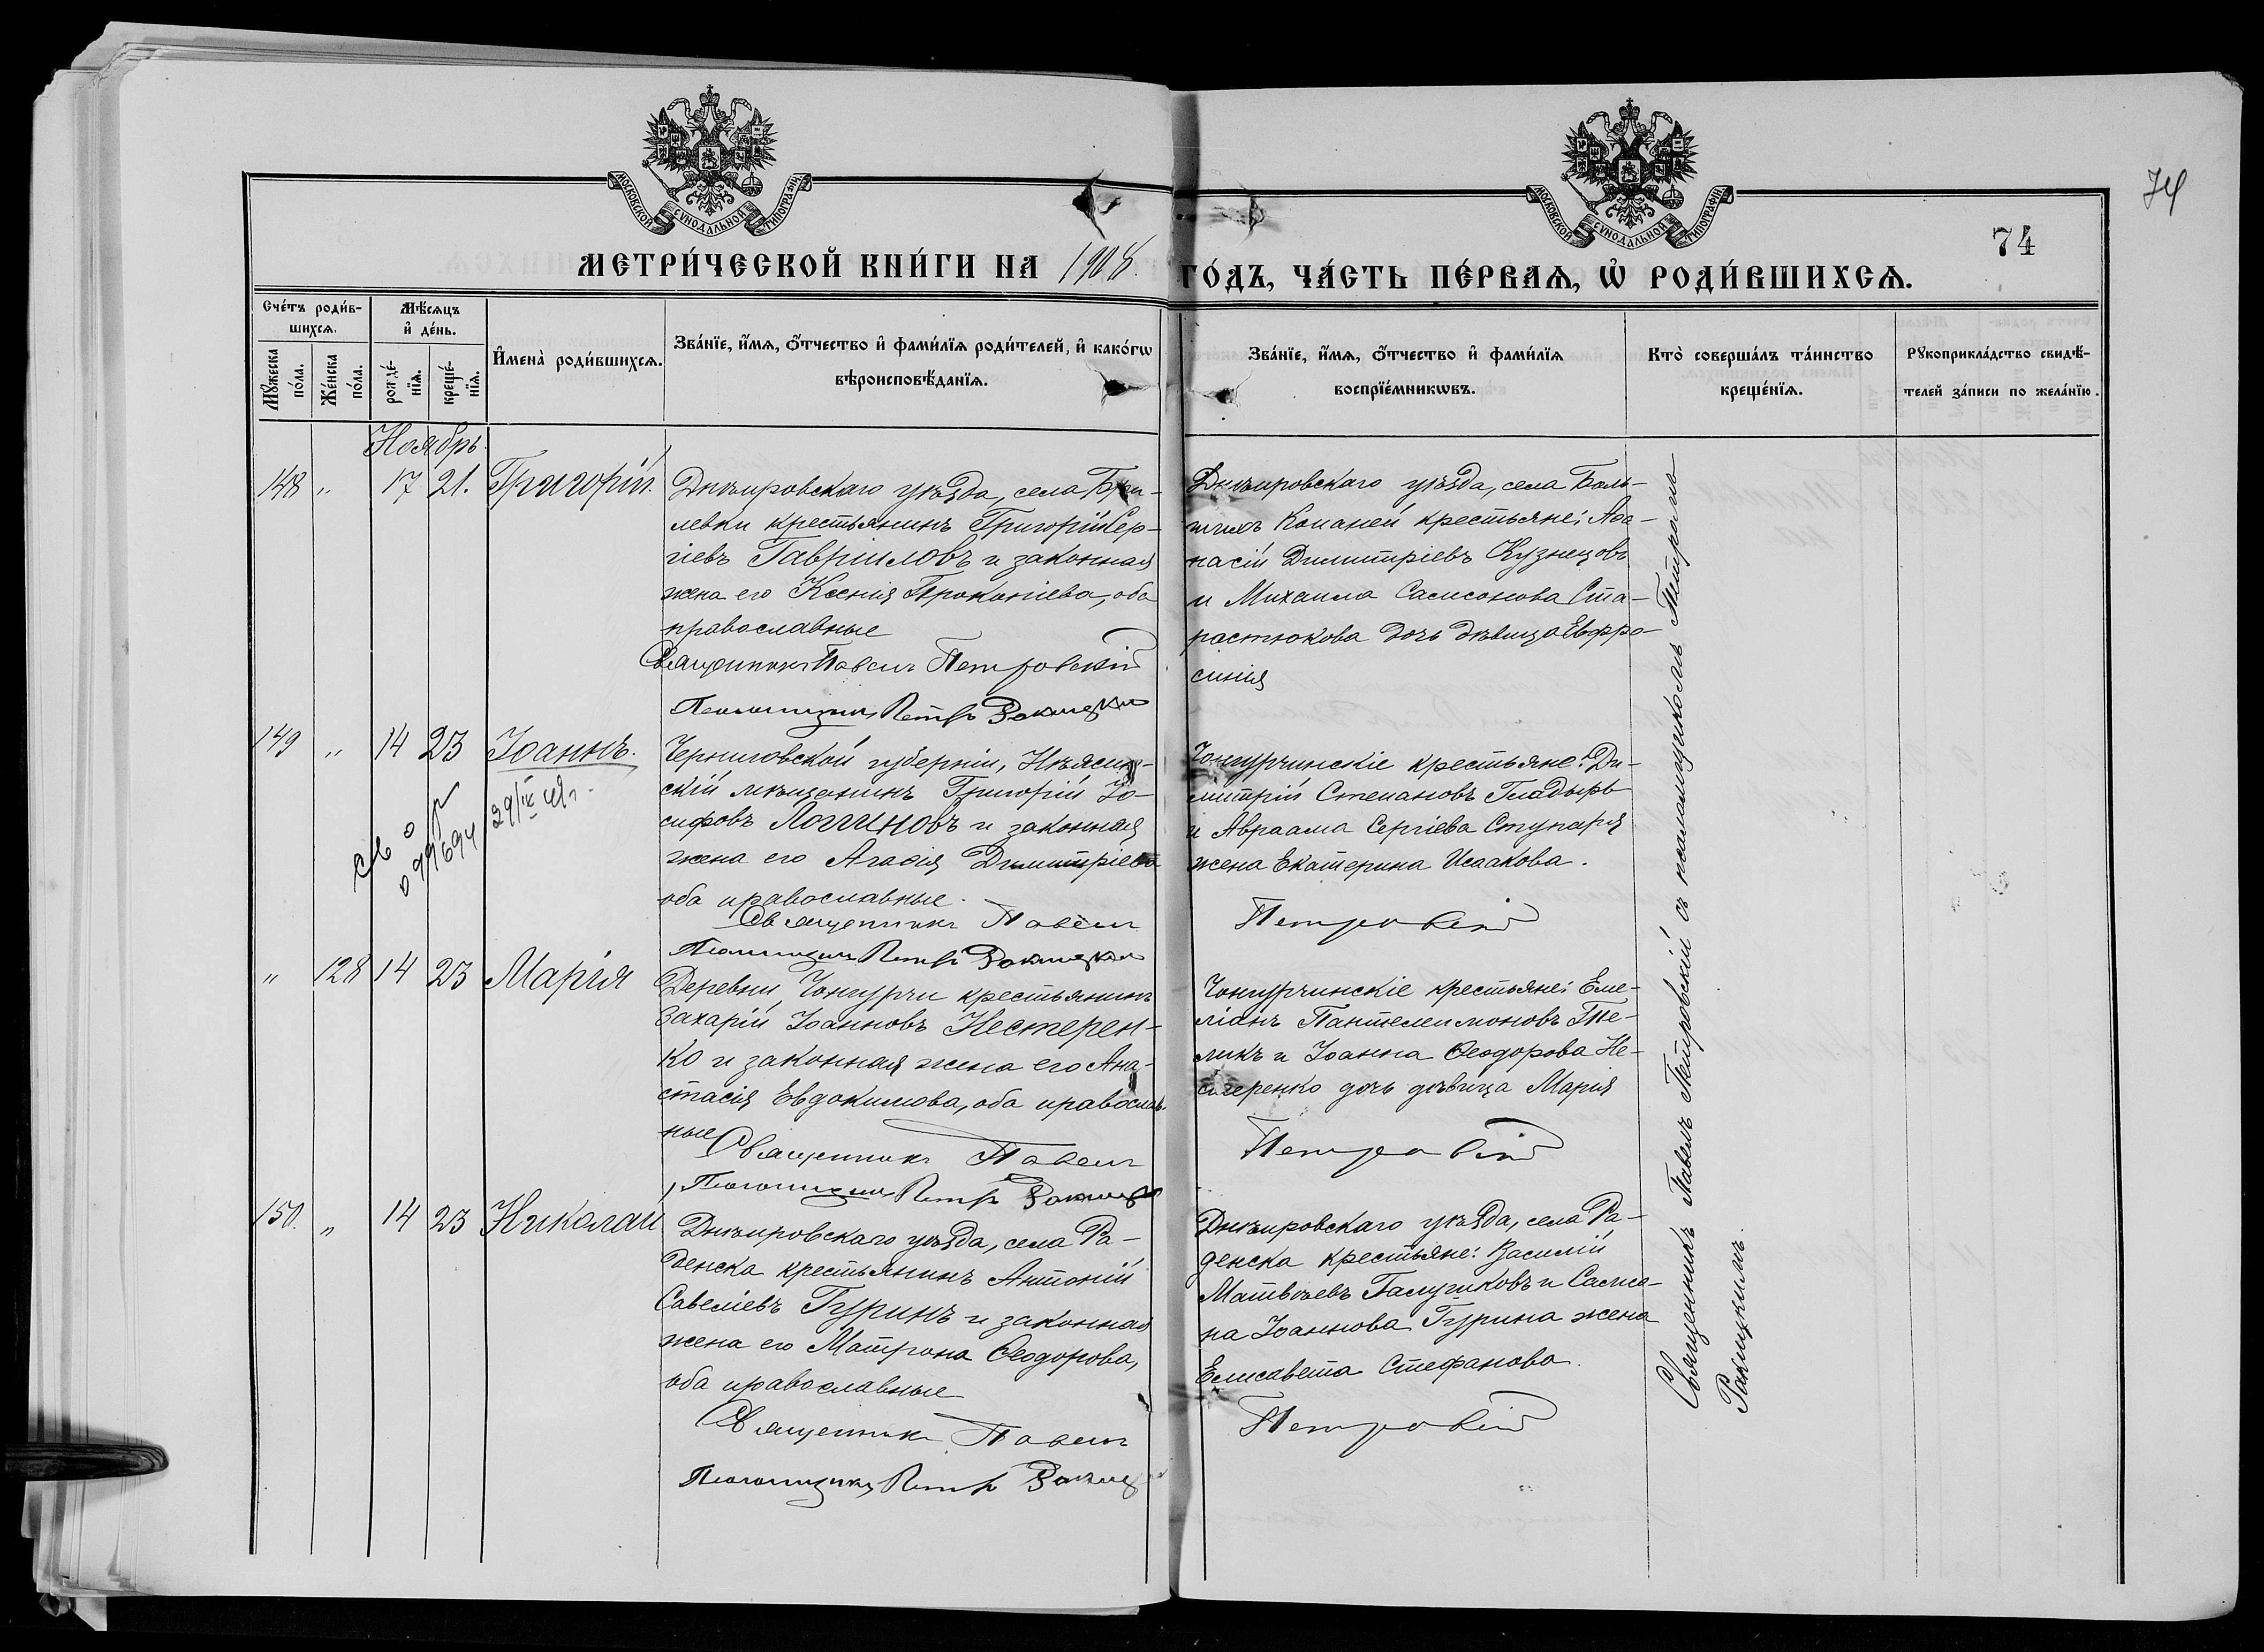 74
74
МОСКОВСКОЙ СУНОДАЛЬНОЙ ТИПОГРАФІИ
МОСКОВСКОЙ СУНОДАЛЬНОЙ ТИПОГРАФІИ
МЕТРИ́ЧЕСКОЙ КНИ́ГИ НА 1908. ГО́ДЪ, ЧА́СТЬ ПЕ́РВАѦ, Ѡ РОДИ́ВШИХСѦ.
Сче́тъ роди́в-
шихсѧ.
Мꙋжеска по́ла.
Же́нска по́ла.
Мѣ́сѧцъ
и҆ де́нь.
рожде́-
нїѧ.
креще́-
нїѧ.
И҆мена̀ роди́вшихсѧ.
Зва́нїе, и҆́мѧ, ѻ҆́тчество и҆ фами́лїѧ роди́телей, и҆ како́гѡ
вѣроисповѣ́данїѧ.
Зва́нїе, и҆́мѧ, ѻ҆́тчество и҆ фами́лїѧ
воспрїе́мникѡвъ.
Кто̀ соверша́лъ та́инство
креще́нїѧ.
Рꙋкоприкла́дство свидѣ́-
телей за́писи по жела́нїю.
Ноябрь.
148 " 17 21. Григорій.
Днѣпровскаго уѣзда, села Бри-
левки крестьянинъ Григорій Сер-
гіевъ Гавріиловъ и законная
жена его Ксенія Прокопіева, оба
православные
Священникъ Павелъ Петровскій
Псаломщикъ Петръ Ракицкій
Днѣпровскаго уѣзда, села Боль-
шихъ Копаней крестьяне: Аѳа-
насій Димитріевъ Кузнецовъ
и Михаила Сампсонова Ста-
растюкова дочь дѣвица Евфро-
синія
149 " 14 23 Іоаннъ.
29/IX 49 г.
Черниговской губерніи, Нѣжин-
скій мѣщанинъ Григорій Іо-
сифовъ Логгиновъ и законная
жена его Агаѳія Димитріева
оба православные.
Священникъ Павелъ Петровскій
Псаломщикъ Петръ Ракицкій
Чонгурчинскіе крестьяне: Ди-
митрій Степановъ Гладырь
и Авраама Сергіева Ступаря
жена Екатерина Исаакова.
" 128 14 23 Марія
Деревни Чонгурчи крестьянинъ
Захарій Іоанновъ Нестерен-
ко и законная жена его Ана-
стасія Евдокимова, оба православ-
ные
Священникъ Павелъ Петровскій
Псаломщикъ Петръ Ракицкій
Чонгурчинскіе крестьяне: Еме-
ліанъ Пантелеимоновъ
и Іоанна Ѳеодорова Не-
стеренко дочь дѣвица Марія
150. " 14 23 Николай
Днѣпровскаго уѣзда, села Ра-
денска крестьянинъ Антоній
Савеліевъ Гуринъ и законная
жена его Матрона Ѳеодорова,
оба православные
Священникъ Павелъ Петровскій
Псаломщикъ Петръ Ракицкій
Днѣпровскаго уѣзда, села Ра-
денска крестьяне: Василій
Матвѣевъ Галушковъ и Сампсо-
на Іоаннова Гурина жена
Елисавета Стефанова.
Священникъ Павелъ Петровскій съ псаломщикомъ Петромъ
Ракицкимъ.